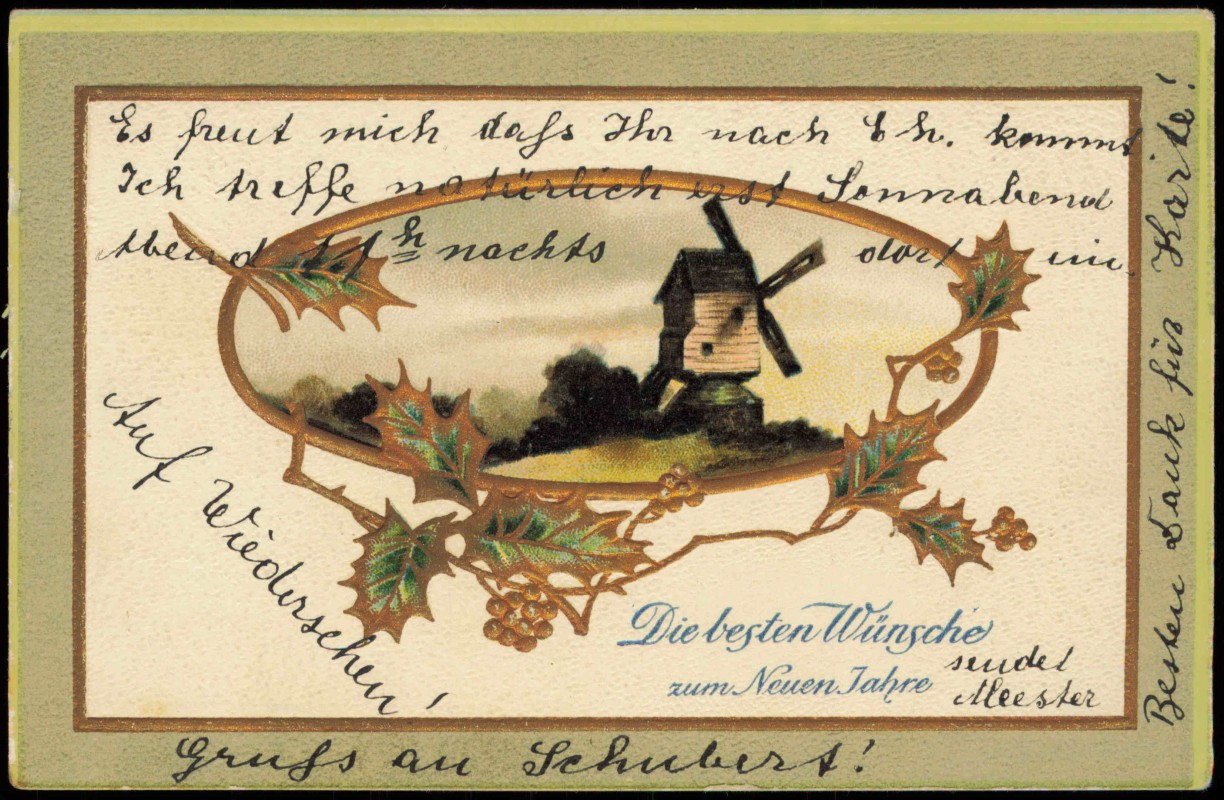 Es freut mich daſs Ihr nach Ch. kommt
Ich treffe natürlich erst Sonnabend
Abend 11 h nachts dort ein.
Auf Wiedersehen!
Die besten Wünsche
zum Neuen Jahre
sendet
Meester
Gruſs an Schubert!
Besten Dank für Karte!